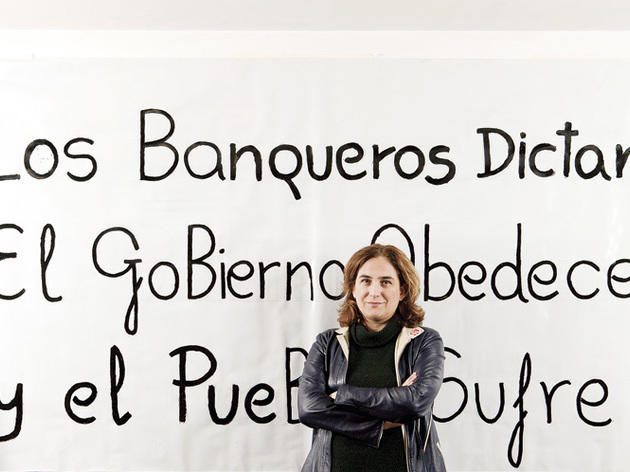 Los Banqueros Dictan
El GoBierno Obedece
y el PueB Sufre